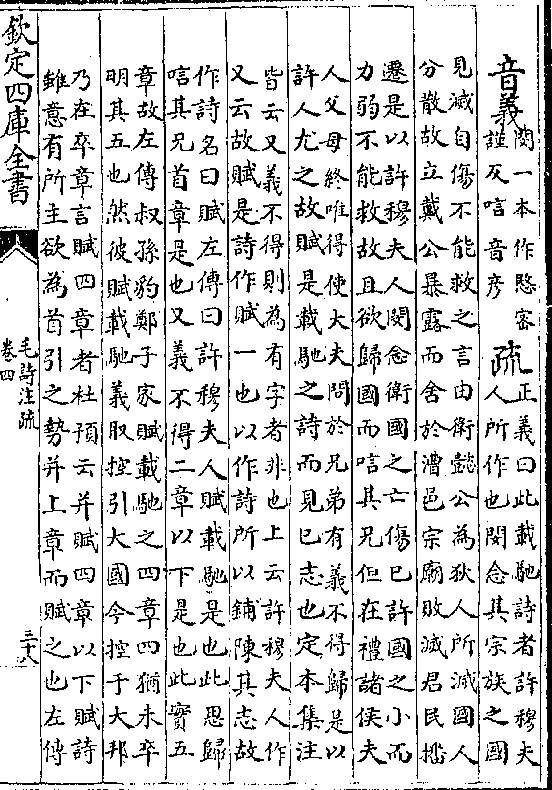 音義閔一本作愍密
謹反唁音彥
疏正義曰此載馳詩者許穆夫
人所作也閔念其宗族之國
見滅自傷不能救之言由衛懿公為狄人所滅國人
分散故立戴公暴露而舍於漕邑宗廟敗滅君民播
遷是以許穆夫人閔念衛國之亡傷已許國之小而
力弱不能救故且欲歸國而唁其兄但在禮諸侯夫
人父母終唯得使大夫問於兄弟有義不得歸是以
許人尤之故賦是載馳之詩而見已志也定本集注
皆云又義不得則為有字者非也上云許穆夫人作
又云故賦是詩作賦一也以作詩所以鋪陳其志故
作詩名曰賦左傳曰許穆夫人賦載馳是也此思歸
唁其兄首章是也又義不得二章以下是也此實五
章故左傳叔孫豹鄭子家賦載馳之四章四猶未卒
明其五也然彼賦載馳義取控引大國今控于大邦
乃在卒章言賦四章者杜預云并賦四章以下賦詩
雖意有所主欲為首引之勢并上章而賦之也左傳
欽定四庫全書
毛詩注疏
卷四
三十八